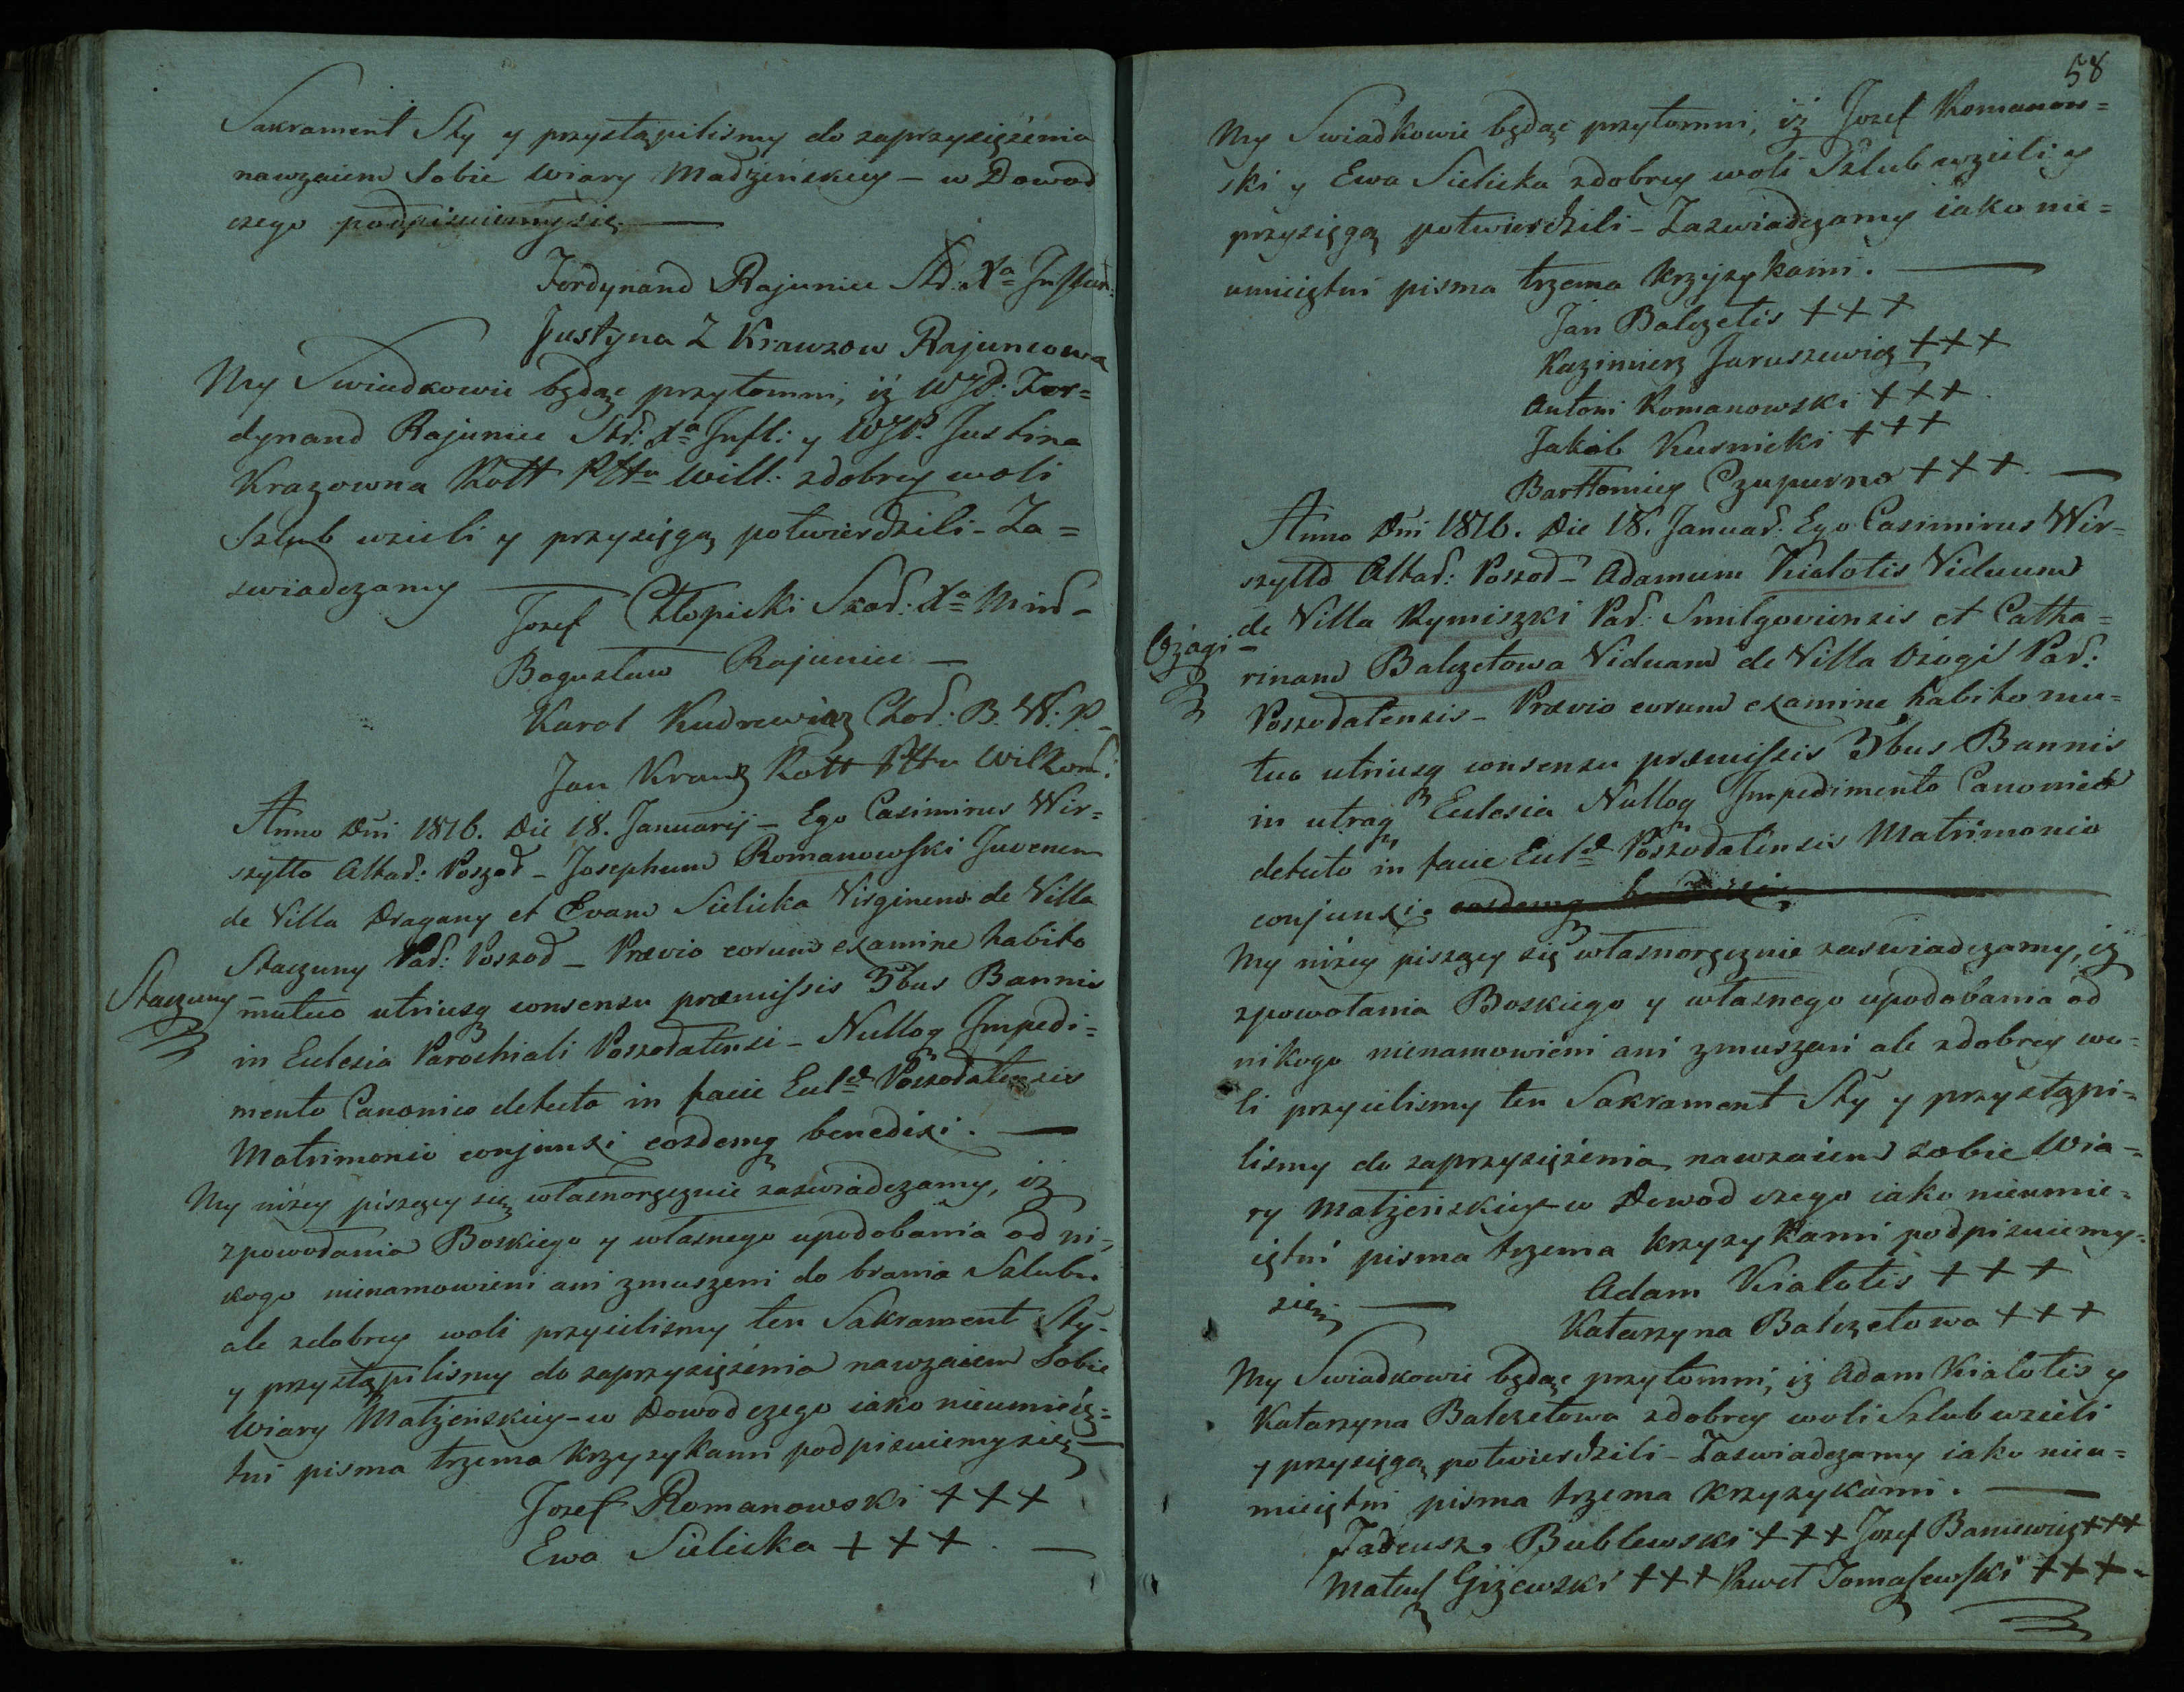 Sakrament Sty y przystąpilismy do zaprzysiężenia
nawzaiem Sobie Wiary Madżeńskiey – w Dowod
czego podpisuiemy się —
Ferdynand Rajuniec Str: Xa Inflan:
Justyna Z Krawzow Rajuncowa
My Swiadkowie będąc przytomni, iż WJP. Fer=
dynand Rajuniec Str: Xa Infl: y WJP. Justina
Krazowna Rott Pttu Will: zdobrey woli
Szlub wzieli y przysięgą potwierdzili – Za=
swiadczamy —
Jozef Chłopicki Skar: Xa Mind –
Bogusław Rajuniec —
Karol Kudrewicz Chor: B. W: P –
Jan Krauz Rott Pttu Wilkom:
Anno Dni 1816. Die 18. Januarij – Ego Casimirus Wir=
szyłło Altar: Poszod – Josephum Romanowski Juvenem
de Villa Dragany et Evam Sielicka Virginem de Villa
Staczuny Par: Poszod – Prævio eorum examine habito
Staczuny – mutuo utriusq consensu præmissis 3bus Bannis
in Eclesia Parochiali Poszodatensi – Nulloq Impedi=
mento Canonico detecto in facie Eclæ Poszodatensis
Matrimonio conjunxi eosdemq benedixi. —
My niżey piszący się własnoręcznie zaswiadczamy, iż
zpowołania Boskiego y własnego upodobania od ni=
kogo nienamowieni ani zmuszeni do brania Szlubu
ale zdobrey woli przyielismy ten Sakrament Sty –
y przystąpilismy do zaprzysiężenia nawzaiem Sobie
Wiary Małżeńskiey – w Dowod czego iako nieumieię=
tni pisma trzema krzyzykami podpisuiemy się —
Jozef Romanowski +++
Ewa Sielicka +++. —
58
My Swiadkowie będąc przytomni, iż Jozef Romanow=
ski y Ewa Sielicka zdobrey woli Szlub wzieli y
przysięgą potwierdzili – Zaswiadczamy iako nie=
umieiętni pisma trzema krzyzykami. —
Jan Balczetis +++
Kazimierz Jaruszewicz +++
Antoni Romanowski +++.
Jakób Kusnicki +++
Bartłomiey Czupurno +++. —
Anno Dni 1816. Die 18. Januar. Ego Casimirus Wir=
szyłło Altar: Poszod – Adamum Kialotis Viduum
de Villa Rymiszki Par: Smilgoviensis et Catha=
Ożogi – rinam Balczetowa Viduam de Villa Ożogi Par:
Poszodatensis – Prævio eorum examine habito mu=
tuo utriusq consensu præmissis 3bus Bannis
in utraq Eclesia Nulloq Impedimento Canonico
detecto in facie Eclæ Poszodatensis Matrimonio
conjunxi. eosdemq benedixi. —
My niżey piszący się własnoręcznie zaswiadczamy, iż
zpowołania Boskiego y własnego upodobania od
nikogo nienamowieni ani zmuszeni ale zdobrey wo=
li przyielismy ten Sakrament Sty y przystąpi=
lismy do zaprzysiężenia nawzaiem sobie Wia=
ry Małżeńskiey – w Dowod czego iako nieumie=
iętni pisma trzema krzyzykami podpisuiemy=
się. —
Adam Kialotis +++
Katarzyna Balczetowa +++
My Swiadkowie będąc przytomni, iż Adam Kialotis y
Katarzyna Balczetowa zdobrey woli Szlub wzieli
y przysięgą potwierdzili – Zaswiadczamy iako nieu=
mieiętni pisma trzema krzyzykami. —
Tadeusz Bublewski +++ Jozef Baniewicz +++
Mateusz Giżewski +++ Paweł Tomaszewski +++ –